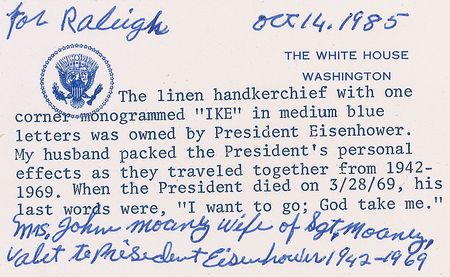 for Raleigh Oct 14, 1985
THE WHITE HOUSE
WASHINGTON
The linen handkerchief with one
corner monogrammed "IKE" in medium blue
letters was owned by President Eisenhower.
My husband packed the President's personal
effects as they traveled together from 1942-
1969. When the President died on 3/28/69, his
last words were, "I want to go; God take me."
Mrs. John Moaney wife of Sgt, Moaney,
valet to President Eisenhower 1942-1969